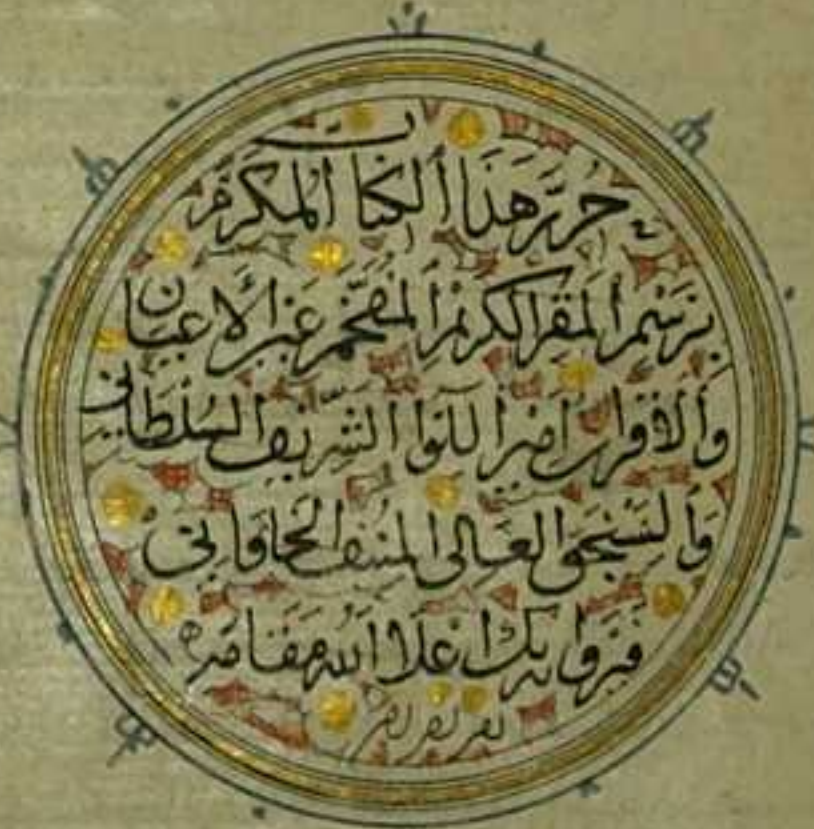 حُرِّرَ هَذَا ٱلكتاب ٱلمكرم
بِرَسْمِ ٱلمَقَرِّ الكَرِيْمِ ٱلمُفَخَّمِ عَيْن ٱلأعيان
وَٱلأقران أمير اللوا الشَّريف السُلْطَاني
وَٱلسَنْجَق العَالى المنيف الخاقَانى
فَرْوَا بك اعْلَا الله مَقَاصده